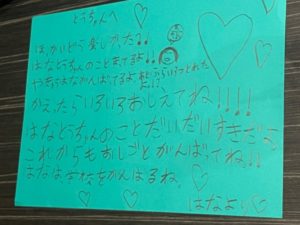 とうちゃんへ
ほっかいどう楽しかった!!
はなどうちゃんのことまってるよ!!
やきゅうはながんばってるよ
かえったらいろいろおしえてね!!!!
はなどうちゃんのことだいだいすきだよ
これからもおしごとがんばってね!!
はなは学校をがんばるね。
はなより